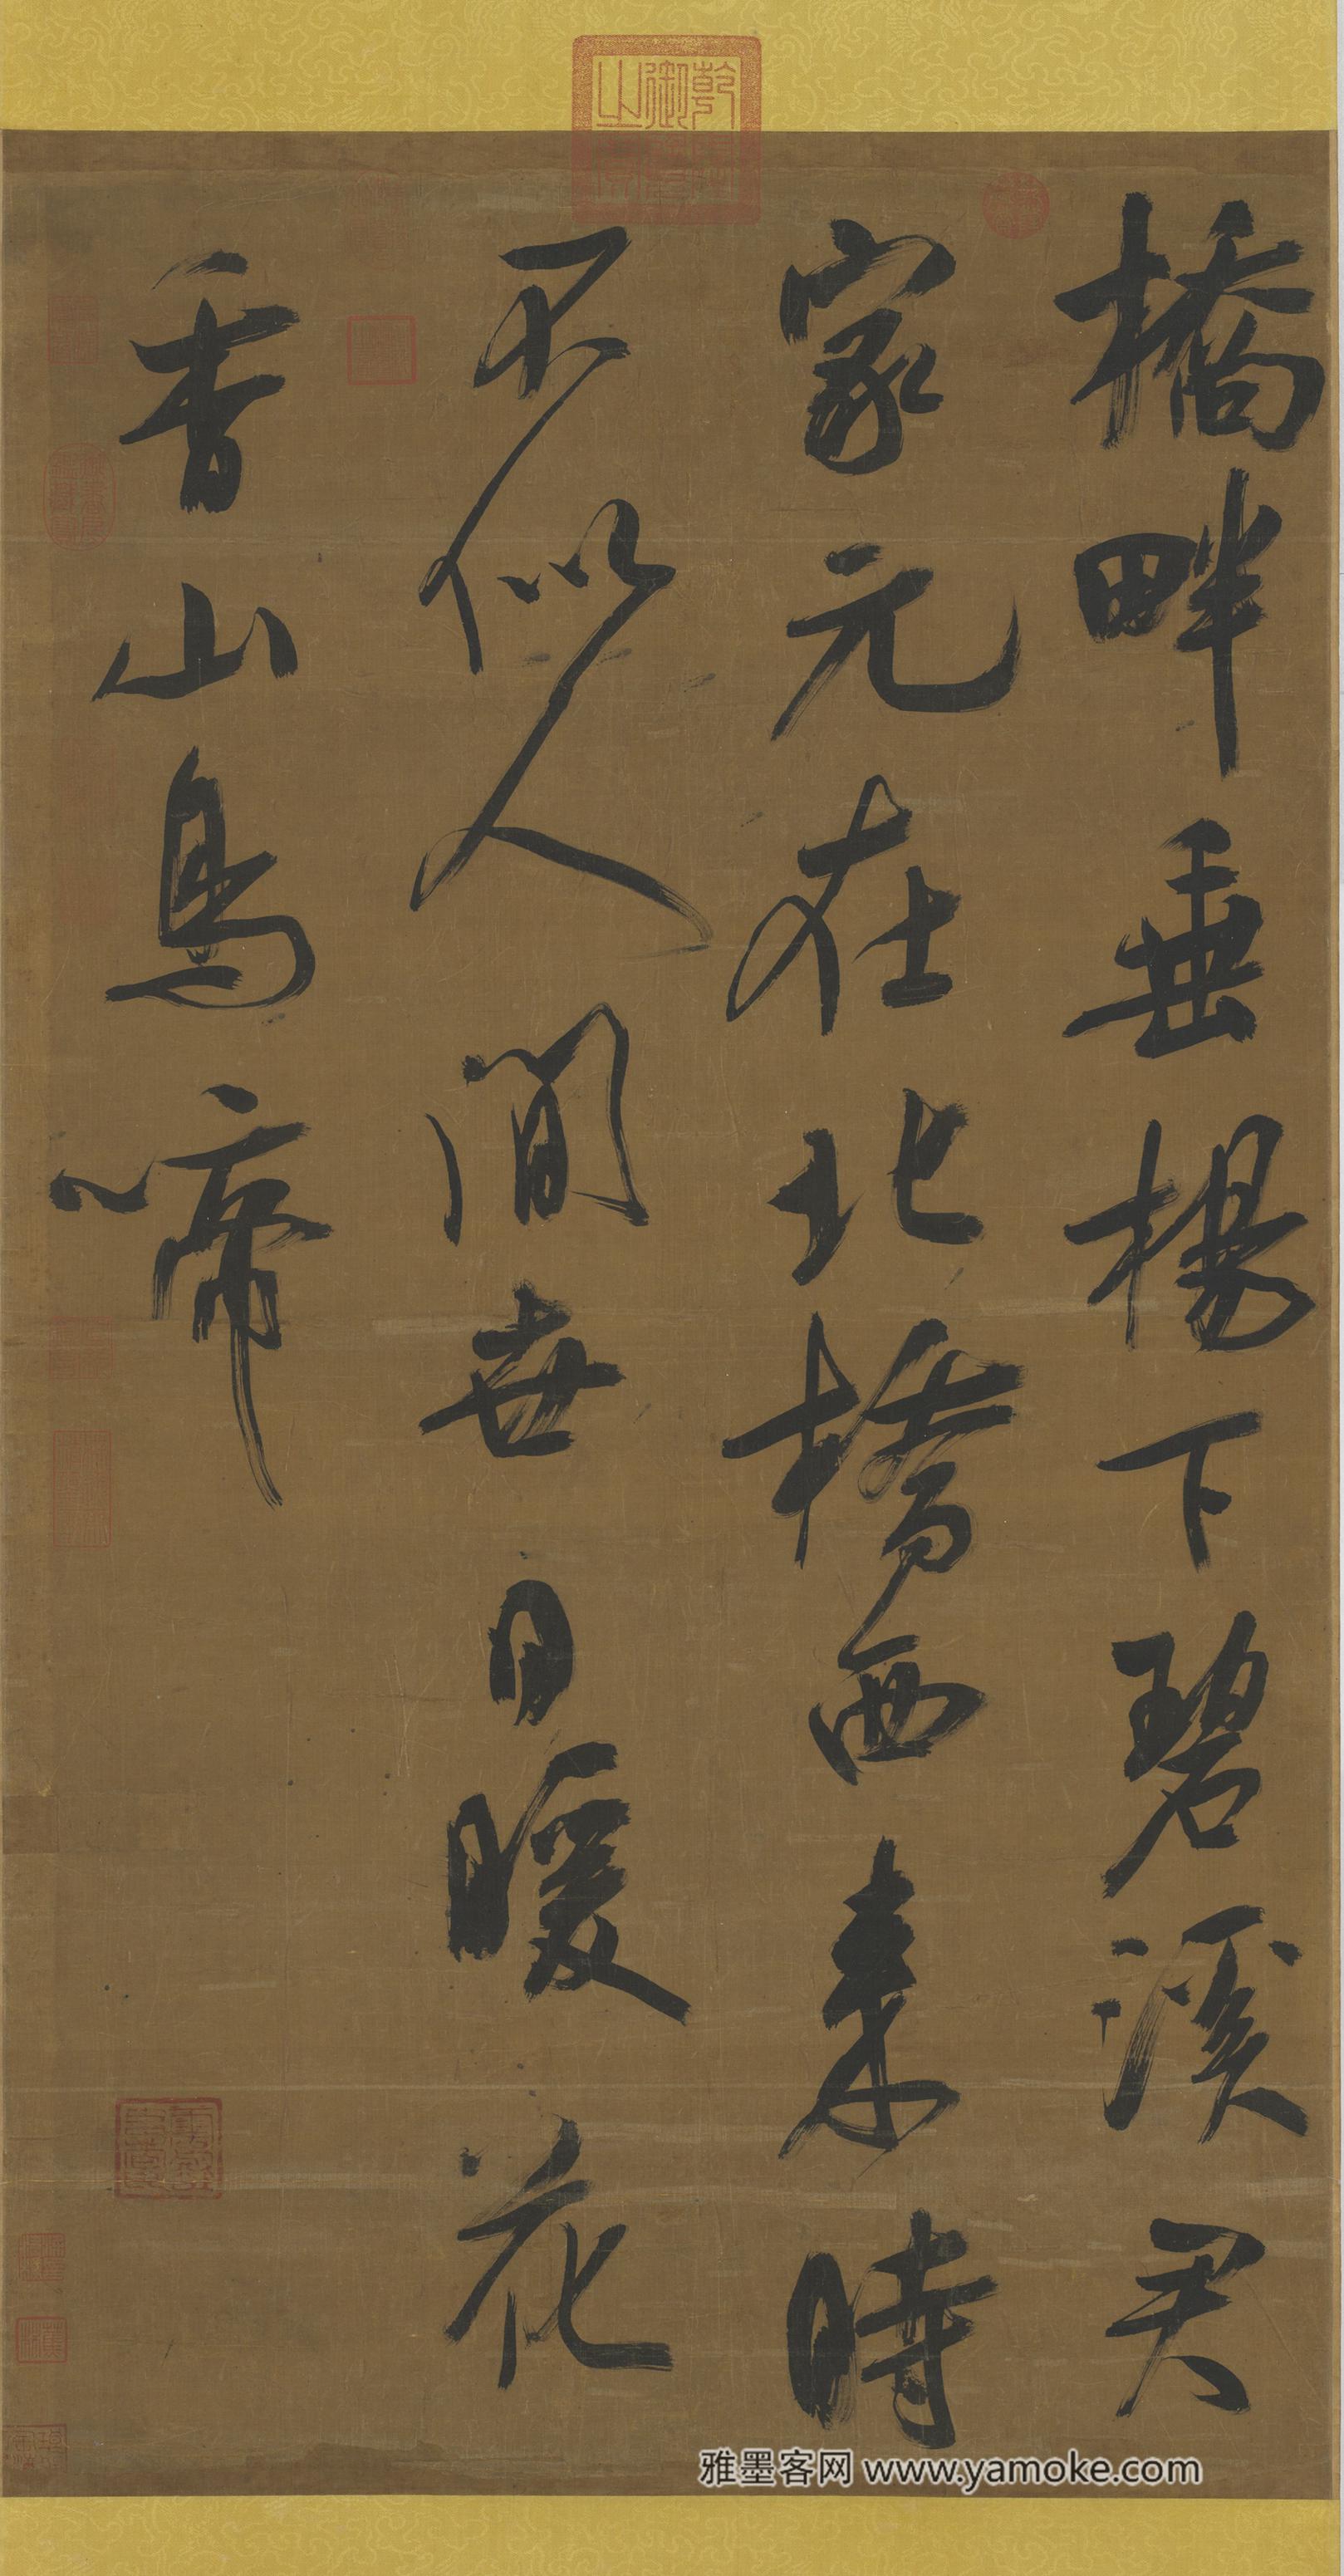 橋畔垂楊下碧溪君
家元在北橋西来時
不似人間世日暖花
香山鳥啼
乾隆御覽之寶
雅墨客网 www.yamoke.com